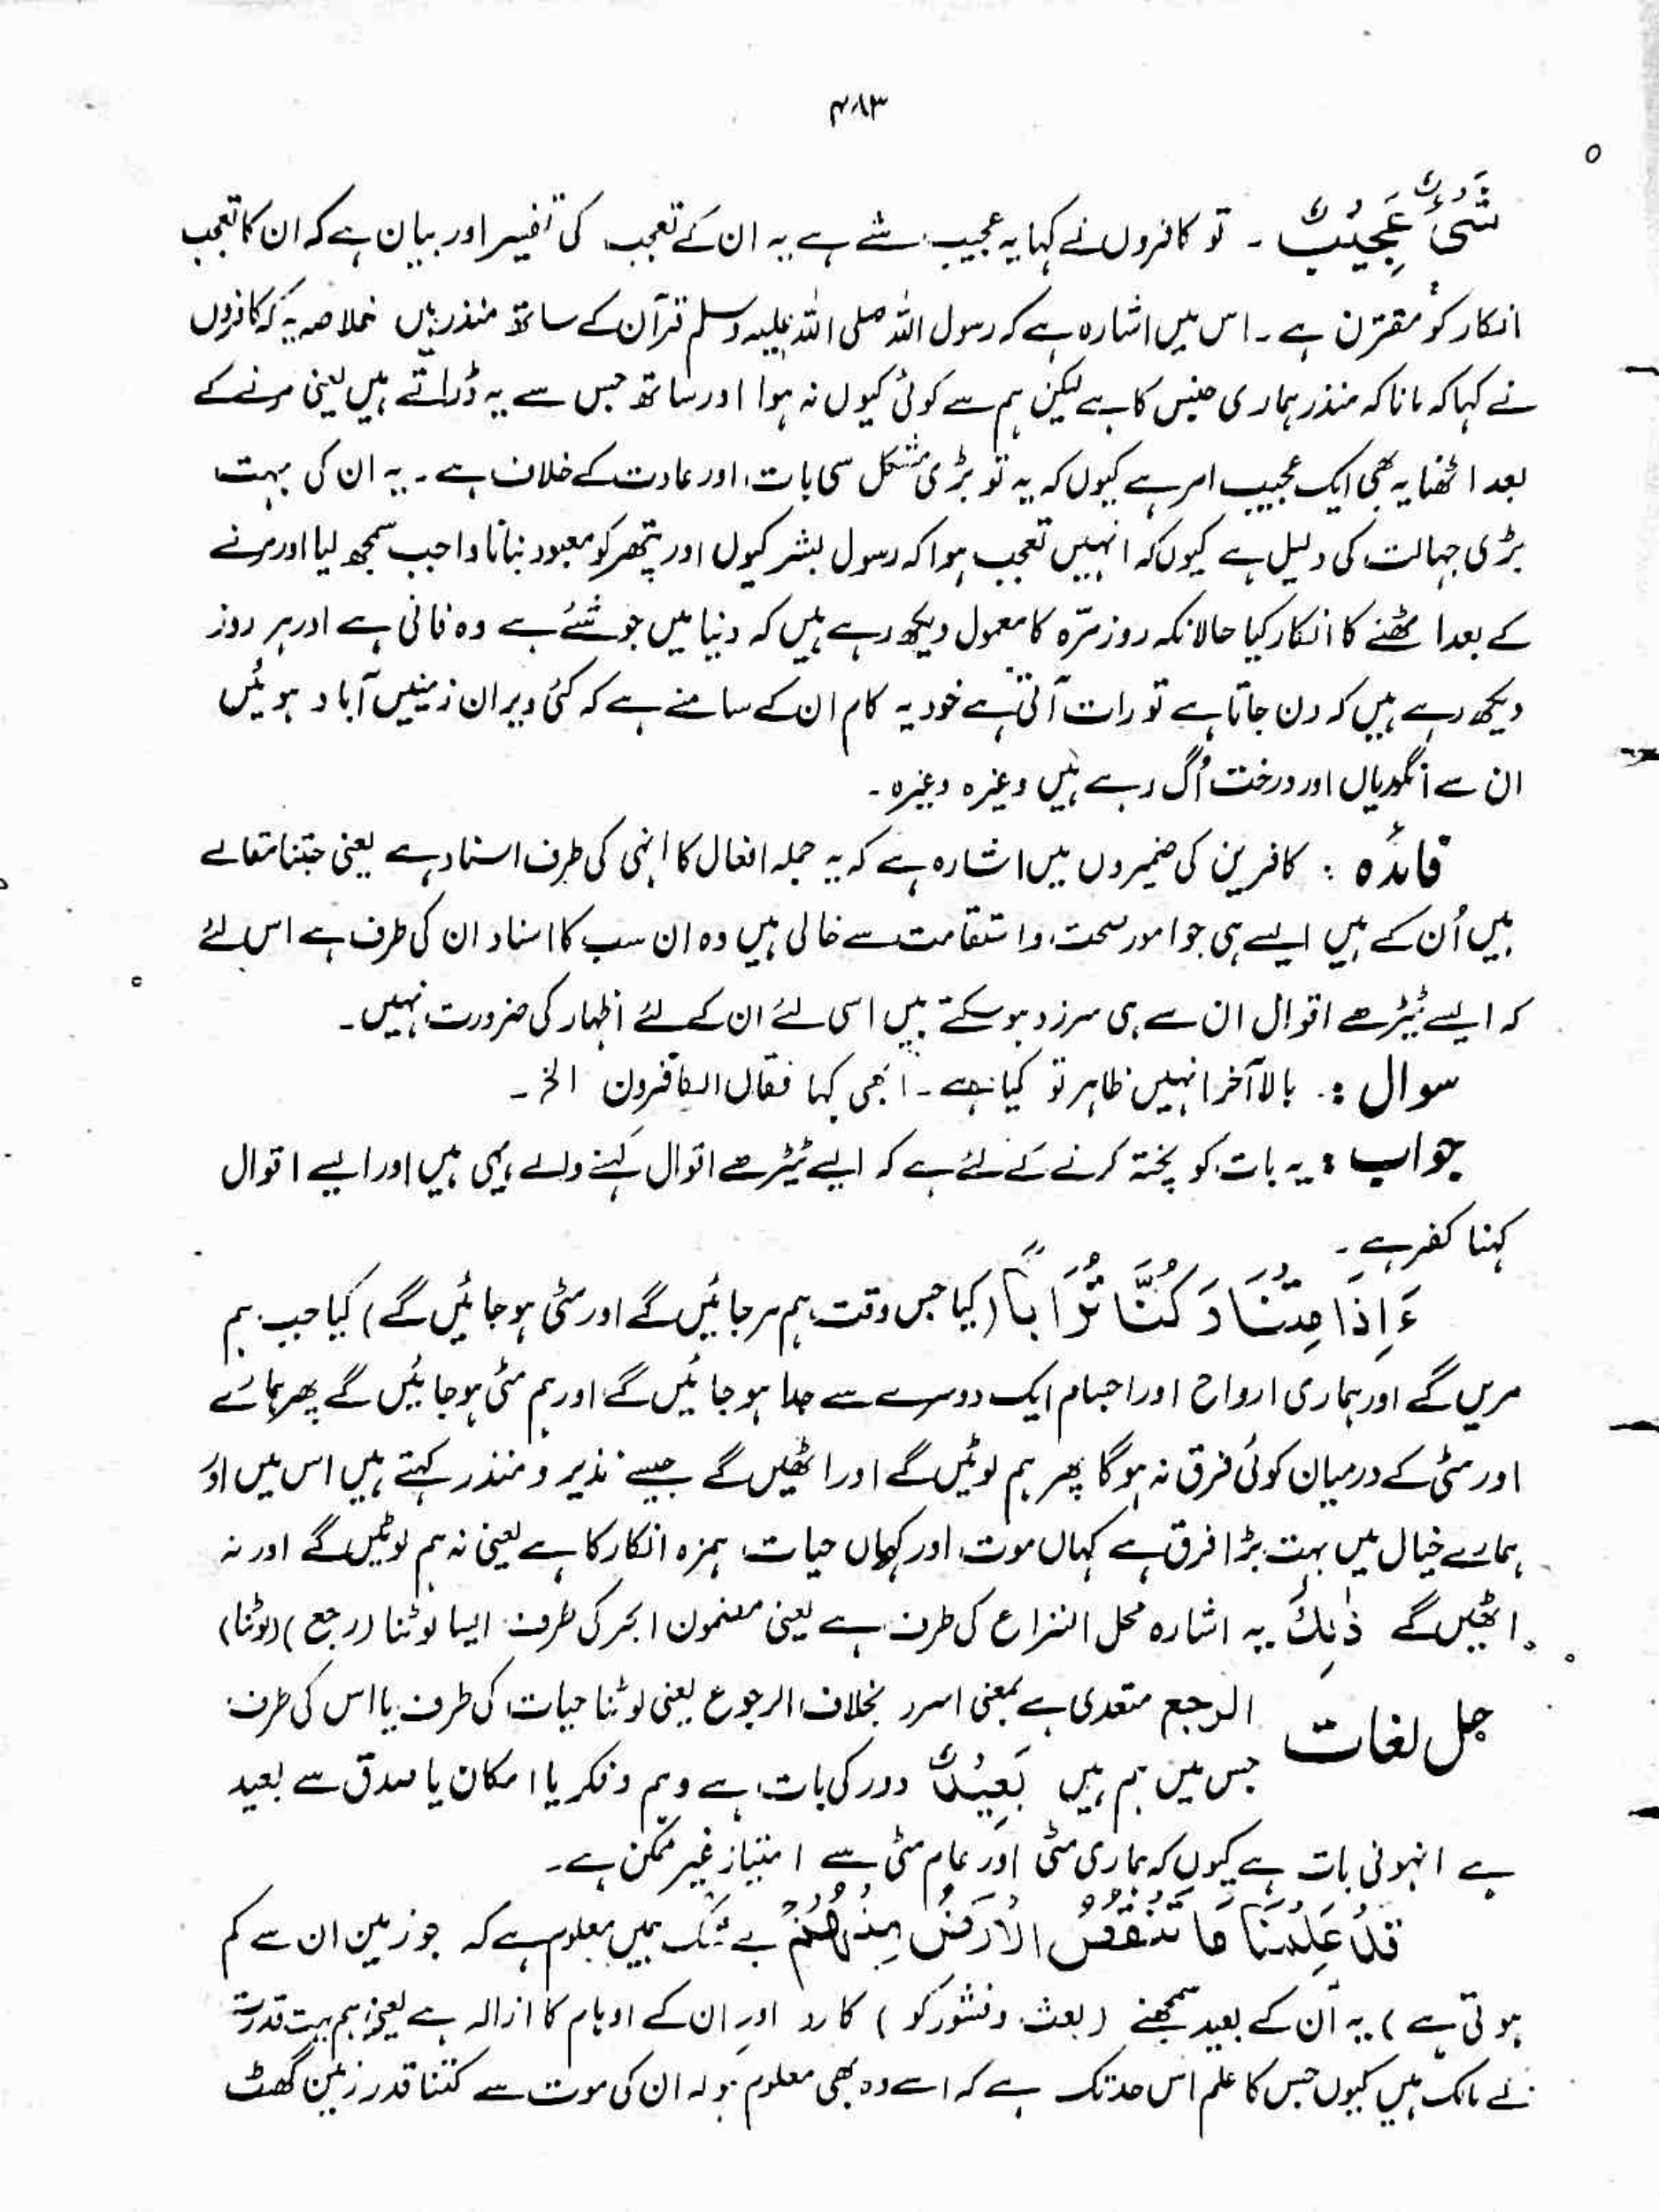 ۴۸۳
شَیْءٌ عَجِیْبٌ ۔ تو کافروں نے کہا یہ عجیب شے ہے یہ ان کے تعجب کی تفسیر اور بیان ہے کہ ان کا تعجب
انکار کو مقترن ہے۔ اس میں اشارہ ہے کہ رسول اللہ صلی اللہ علیہ وسلم قرآن کے ساتھ منذر ہیں خلاصہ یہ کہ کافروں
نے کہا کہ مانا کہ منذر ہماری جنس کا ہے لیکن ہم سے کوئی کیوں نہ ہوا اور ساتھ جس سے یہ ڈراتے ہیں یعنی مرنے کے
بعد اٹھنا یہ بھی ایک عجیب امر ہے کیوں کہ یہ تو بڑی مشکل سی بات اور عادت کے خلاف ہے۔ یہ ان کی بہت
بڑی جہالت کی دلیل ہے کیوں کہ انہیں تعجب ہوا کہ رسول بشر کیوں اور پتھر کو معبود بنانا واجب سمجھ لیا اور مرنے
کے بعد اٹھنے کا انکار کیا حالانکہ روز مرّہ کا معمول دیکھ رہے ہیں کہ دنیا میں جو شئے ہے وہ فانی ہے اور ہر روز
دیکھ رہے ہیں کہ دن جاتا ہے تو رات آتی ہے خود یہ کام ان کے سامنے ہے کہ کئی ویران زمینیں آباد ہوئیں
ان سے انگوریاں اور درخت اُگ رہے ہیں وغیرہ وغیرہ ۔
فائدہ : کافرین کی ضمیروں میں اشارہ ہے کہ یہ جملہ افعال کا انہی کی طرف اسناد ہے یعنی جتنا مقالے
ہیں اُن کے ہیں ایسے ہی جو امور صحت و استقامت سے خالی ہیں وہ ان سب کا اسناد ان کی طرف ہے اس لئے
کہ ایسے ٹیڑھے اقوال ان سے ہی سرزد ہو سکتے ہیں اسی لئے ان کے لئے اظہار کی ضرورت نہیں ۔
سوال :۔ بالآخر انہیں ظاہر تو کیا ہے ۔ ابھی کہا فقال الکافرون الخ ۔
جواب : یہ بات کو پختہ کرنے کے لئے ہے کہ ایسے ٹیڑھے اقوال کہنے والے یہی ہیں اور ایسے اقوال
کہنا کفر ہے ۔
ءَاِذَا مِتْنَا وَ کُنَّا تُرَابًا (کیا جس وقت ہم مر جائیں گے اور مٹی ہو جائیں گے) کیا جب ہم
مریں گے اور ہماری ارواح اور اجسام ایک دوسرے سے جدا ہو جائیں گے اور ہم مٹی ہو جائیں گے پھر ہمارے
اور مٹی کے درمیان کوئی فرق نہ ہوگا پھر ہم لوٹیں گے اور اٹھیں گے جیسے نذیر و منذر کہتے ہیں اس میں اور
ہمارے خیال میں بہت بڑا فرق ہے کہاں موت اور کہاں حیات ہمزہ انکار کا ہے یعنی نہ ہم لوٹیں گے اور نہ
اٹھیں گے ذٰلِکَ یہ اشارہ محل النزاع کی طرف ہے یعنی مضمون الجر کی طرف ایسا لوٹنا (رجع) (لوٹنا)
حل لغات الرجع متعدی ہے بمعنی اسرد بخلاف الرجوع یعنی لوٹنا حیات کی طرف یا اس کی طرف
جس میں ہم ہیں بَعِیْدٌ دور کی بات ہے وہم و فکر یا امکان یا صدق سے بعید
ہے انہونی بات ہے کیوں کہ ہماری مٹی اور عام مٹی سے امتیاز غیر ممکن ہے ۔
قَدْ عَلِمْنَا مَا تَنْقُصُ الْاَرْضُ مِنْهُمْ بے شک ہمیں معلوم ہے کہ جو زمین ان سے کم
ہوتی ہے) یہ اُن کے بعید سمجھنے (بعث و نشور کو) کا رد اور ان کے اوہام کا ازالہ ہے یعنی ہم بہت قدرت
کے مالک ہیں کیوں جس کا علم اس حد تک ہے کہ اسے وہ بھی معلوم ہو کہ ان کی موت سے کتنا قدر زمین گھٹ